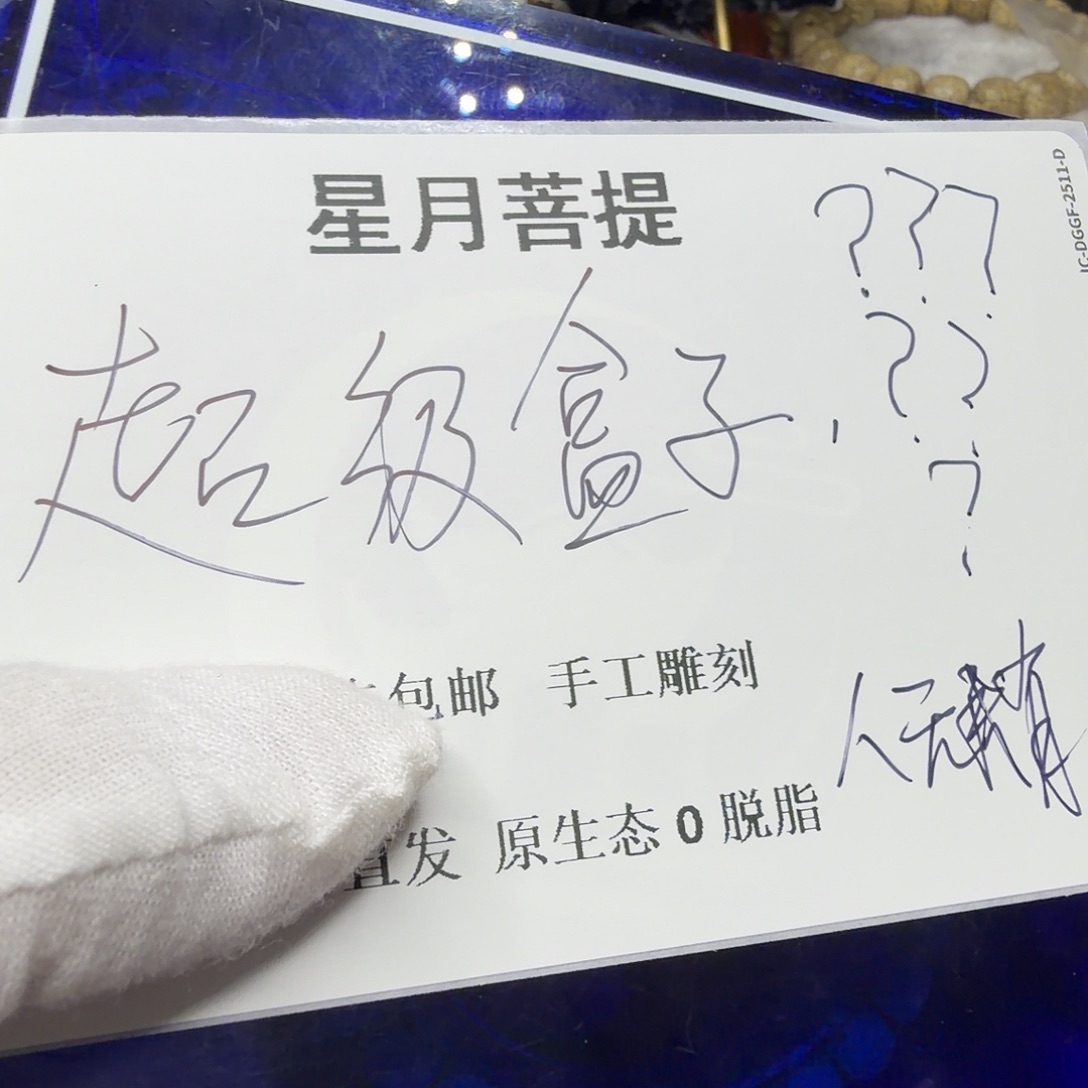 星月菩提
???
超级盒子,
??
?
包邮 手工雕刻
直发 原生态0脱脂
JC-DGGF-2511-D